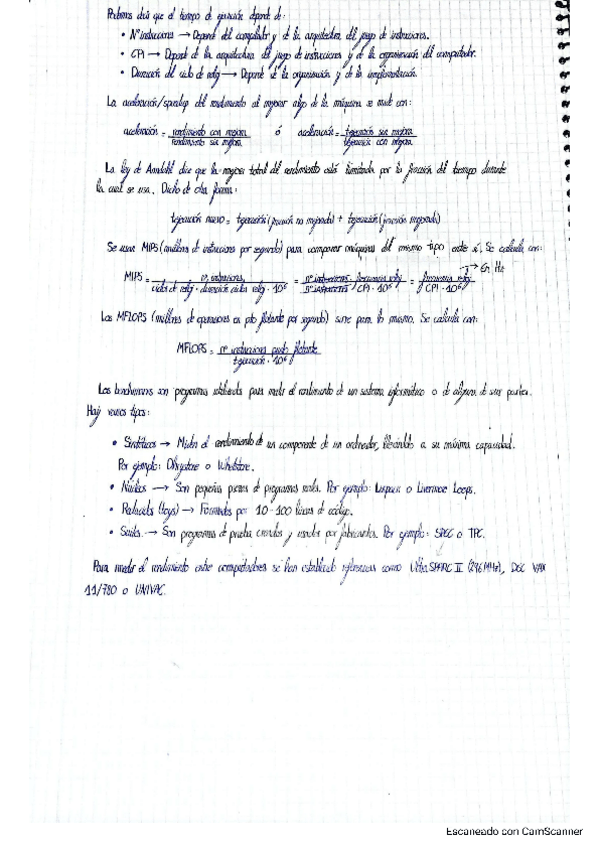 Podemos decir que el tiempo de ejecución depende de:
• Nº instrucciones → Depende del compilador y de la arquitectura del juego de instrucciones.
• CPI → Depende de la arquitectura del juego de instrucciones y de la organización del computador.
• Duración del ciclo de reloj → Depende de la organización y de la implementación.
La aceleración/speedup del rendimiento al mejorar algo de la máquina se mide con:
aceleración = rendimiento con mejora / rendimiento sin mejora ó aceleración = tejecución sin mejora / tejecución con mejora
La ley de Amdahl dice que la mejora total del rendimiento está limitada por la fracción del tiempo durante
la cual se usa. Dicho de otra forma:
tejecución nuevo = tejecución (fracción no mejorada) + tejecución (fracción mejorada)
Se usan MIPS (millones de instrucciones por segundo) para comparar máquinas del mismo tipo entre sí. Se calcula con:
→ En Hz
MIPS = nº instrucciones / ciclos de reloj · duración ciclo reloj · 10⁶ = nº instrucciones · frecuencia reloj / nº instrucciones · CPI · 10⁶ = frecuencia reloj / CPI · 10⁶
Los MFLOPS (millones de operaciones en pto flotante por segundo) sirve para lo mismo. Se calcula con:
MFLOPS = nº instrucciones punto flotante / tejecución · 10⁶
Los benchmarks son programas utilizados para medir el rendimiento de un sistema informático o de alguna de sus partes.
Hay varios tipos:
• Sintéticos → Miden el rendimiento de un componente de un ordenador, llevándolo a su máxima capacidad.
Por ejemplo: Dhrystone o Whetstone.
• Núcleos → Son pequeñas partes de programas reales. Por ejemplo: Linpack o Livermore Loops.
• Reducidos (toys) → Formados por 10-100 líneas de código.
• Suites → Son programas de prueba creados y usados por fabricantes. Por ejemplo: SPEC o TPC.
Para medir el rendimiento entre computadores se han establecido referencias como Ultra SPARC II (296 MHz), DEC VAX
11/780 o UNIVAC.
Escaneado con CamScanner